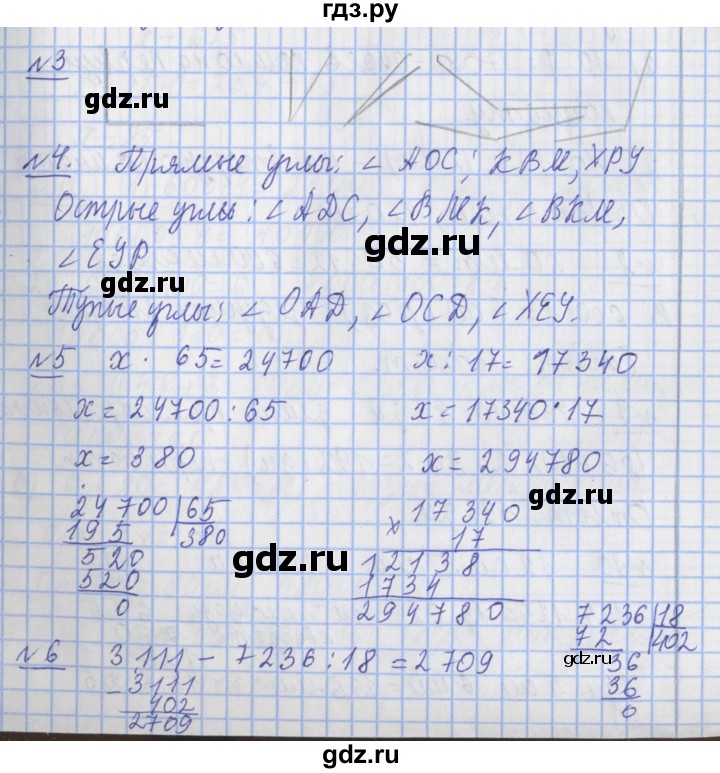 гдз.ру
№3
gdz.ru
№4. Прямые углы: ∠ АОС; КВМ, ХРУ
Острые углы: ∠АDC, ∠ВМК, ∠ВКМ,
gdz.ru
∠ЕУР
Тупые углы: ∠ОАD, ∠ОСD, ∠ХЕУ.
№5 х · 65=24700 х: 17=17340
х=24700:65 х=17340·17
х=380 х=294780
gdz.ru
24700 65
195 380
520
520
0
gdz.ru
17340
х 17
12138
1734
294780
7236 18
72 402
36
36
0
gdz.ru
№6 3111-7236:18=2709
-3111
402
2709
gdz.ru